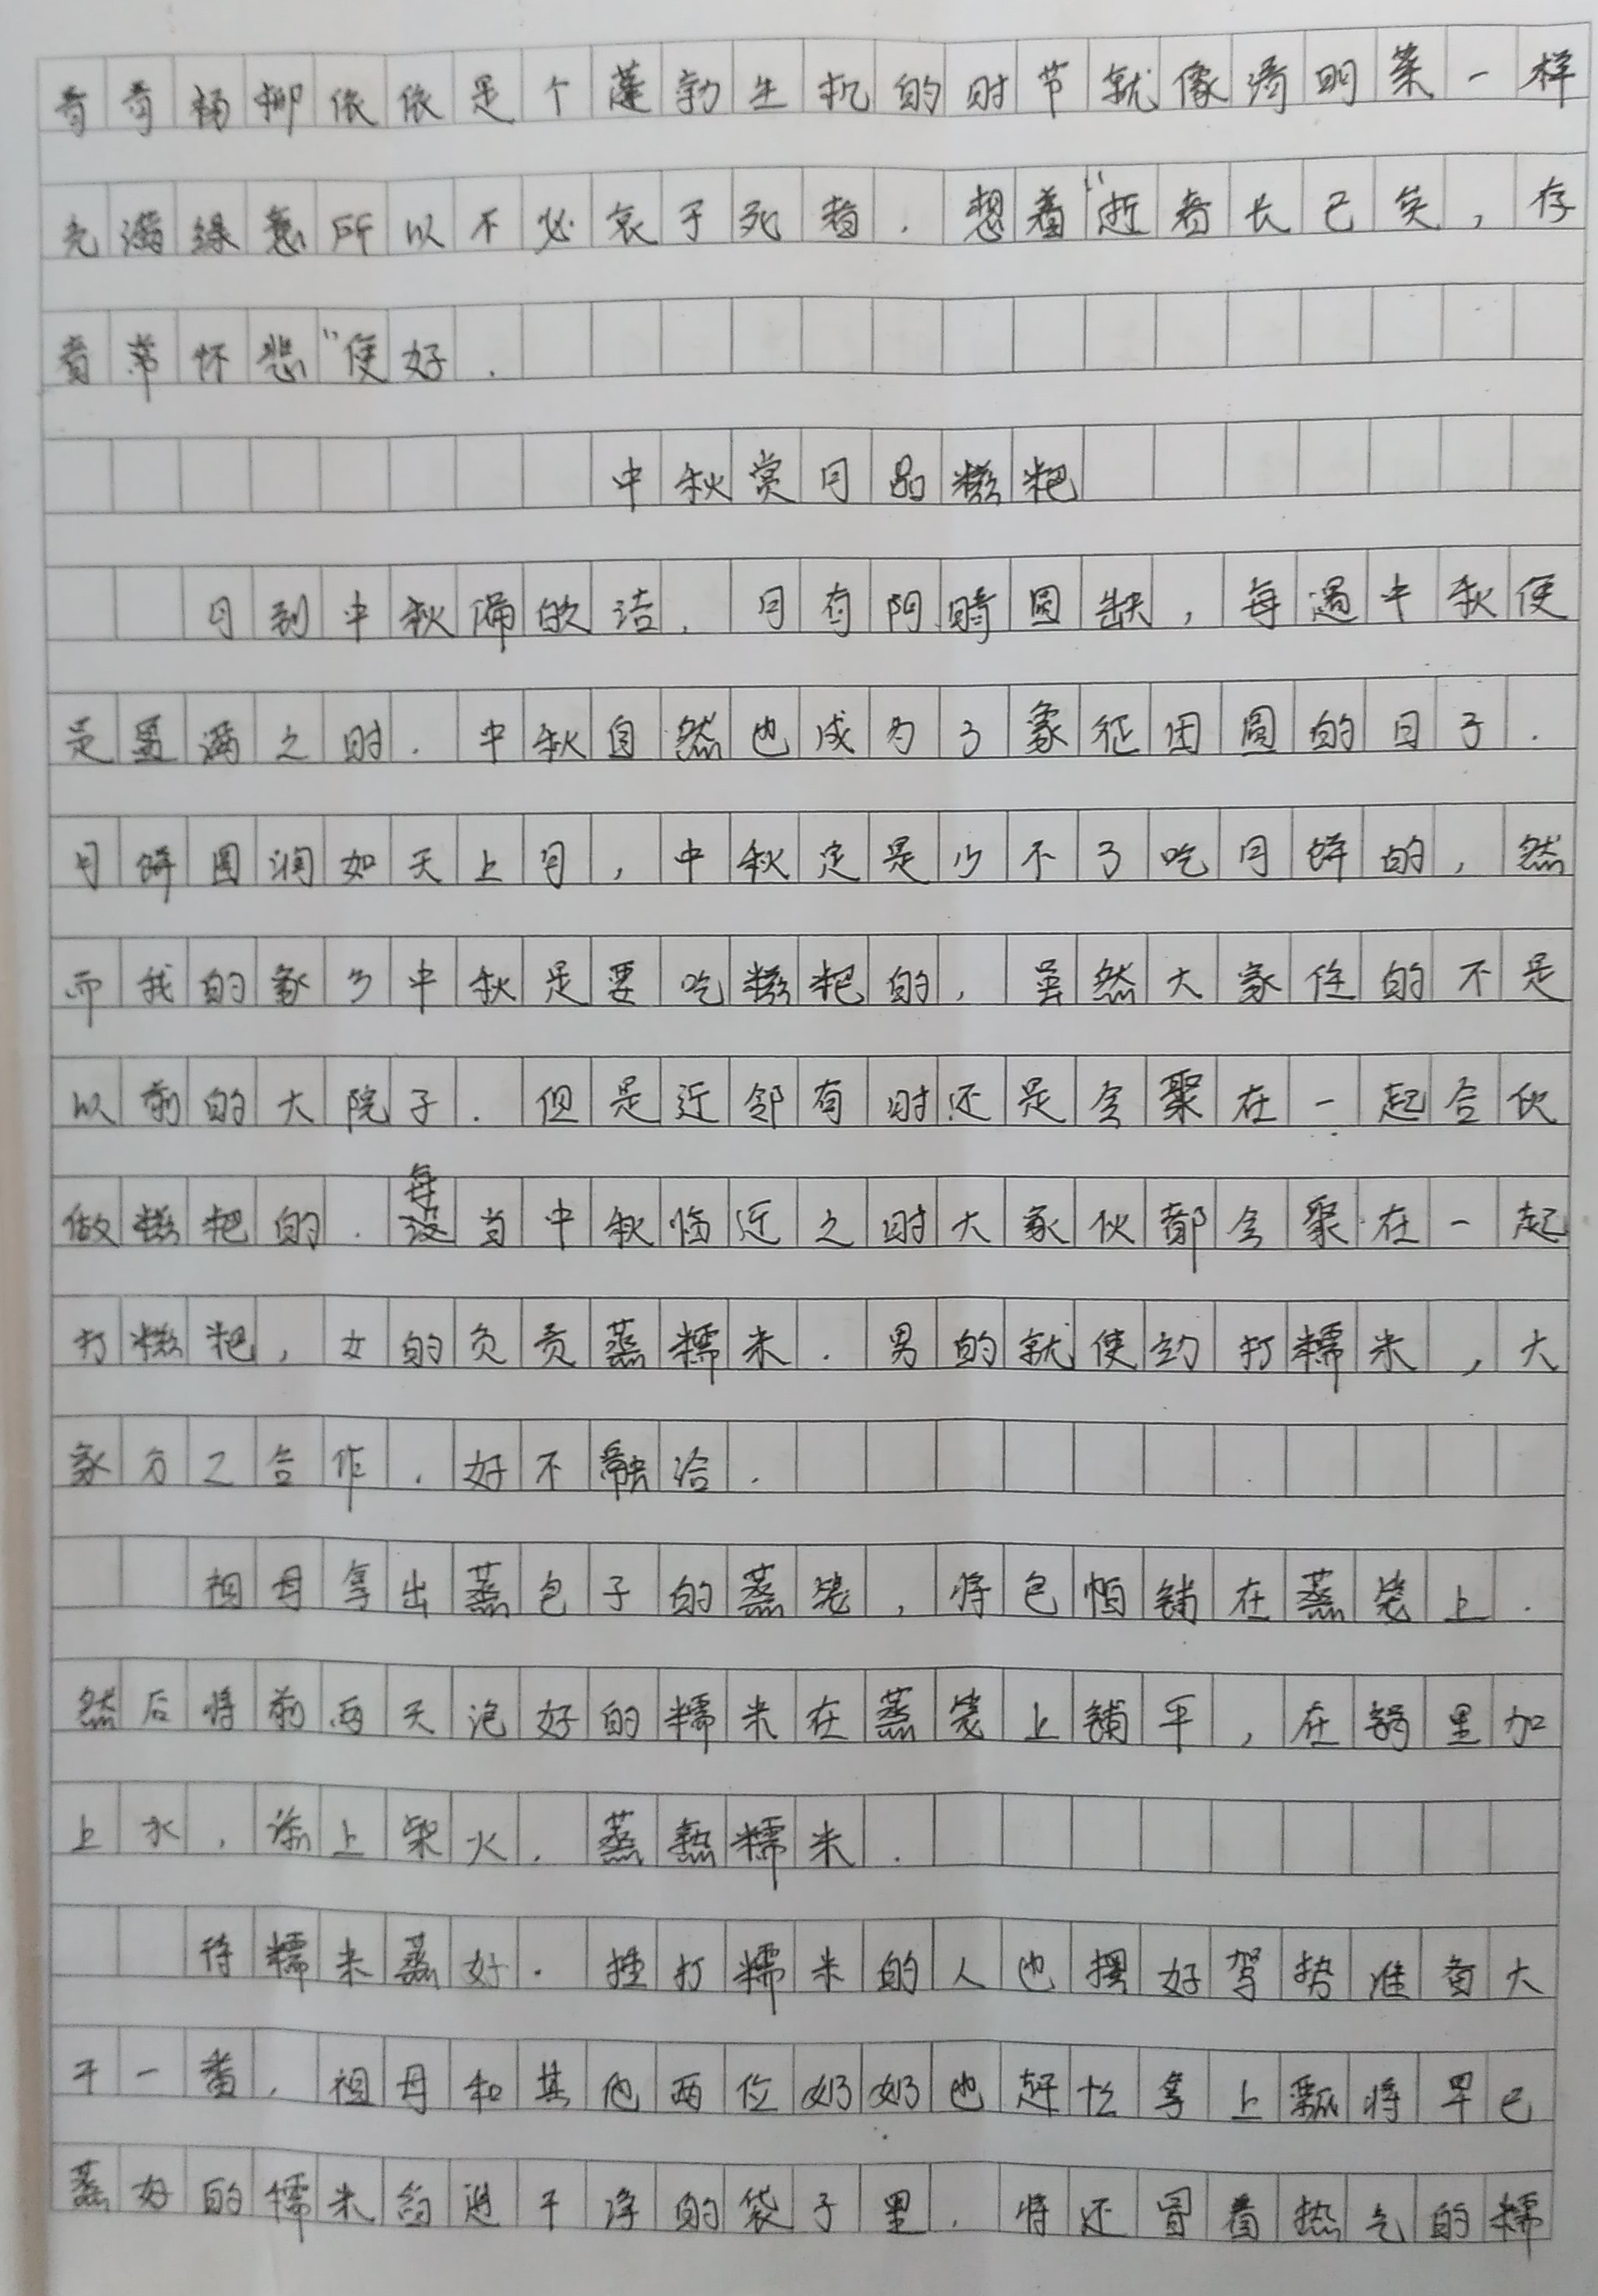 青青杨柳依依是个蓬勃生机的时节就像清明菜一样
充满绿意所以不必哀于死者．想着“逝者长已矣，存
者常怀悲”便好．
中秋赏月品糍粑
月到中秋偏皎洁．月有阴晴圆缺，每遇中秋便
是盈满之时．中秋自然也成为了象征团圆的日子．
月饼圆润如天上月，中秋定是少不了吃月饼的，然
而我的家乡中秋是要吃糍粑的，虽然大家住的不是
以前的大院子．但是近邻有时还是会聚在一起合伙
做糍粑的．每当中秋临近之时大家伙都会聚在一起
打糍粑，女的负责蒸糯米．男的就使劲打糯米，大
家分工合作．好不融洽．
祖母拿出蒸包子的蒸笼，将包帕铺在蒸笼上．
然后将前两天泡好的糯米在蒸笼上铺平，在锅里加
上水，添上柴火．蒸熟糯米．
待糯米蒸好．捶打糯米的人也摆好驾势准备大
干一番．祖母和其他两位奶奶也赶忙拿上瓢将早已
蒸好的糯米舀进干净的袋子里．将还冒着热气的糯